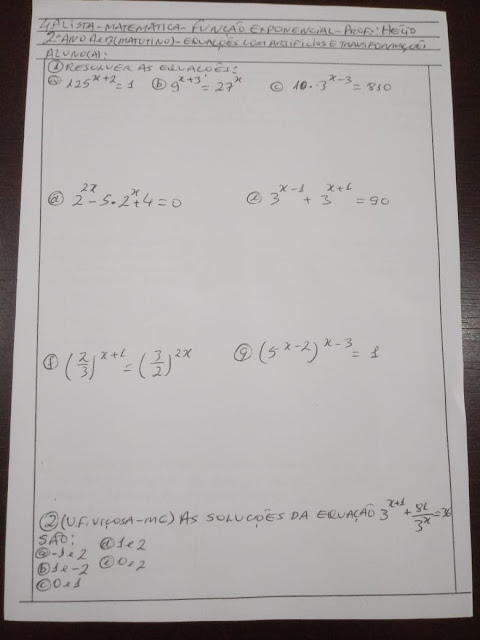 4ª LISTA-MATEMÁTICA-FUNÇÃO EXPONENCIAL-PROF: HÉLIO
2º ANO A e 2 (MATUTINO)-EQUAÇÕES COM ARTIFÍCIOS E TRANSFORMAÇÕES
ALUNO(A):
① RESOLVER AS EQUAÇÕES:
ⓐ 125^(x+2) = 1 ⓑ 9^(x+3) = 27^x ⓒ 10·3^(x-3) = 810
ⓓ 2^(2x) - 5·2^x + 4 = 0 ⓔ 3^(x-1) + 3^(x+1) = 90
ⓕ (2/3)^(x+1) = (3/2)^(2x) ⓖ (5^(x-2))^(x-3) = 1
② (U.F. VIÇOSA-MG) AS SOLUÇÕES DA EQUAÇÃO 3^(x+1) + 81/3^x = 36
SÃO: ⓓ 1 e 2
ⓐ -1 e 2 ⓔ 0 e 2
ⓑ 1 e -2
ⓒ 0 e 1